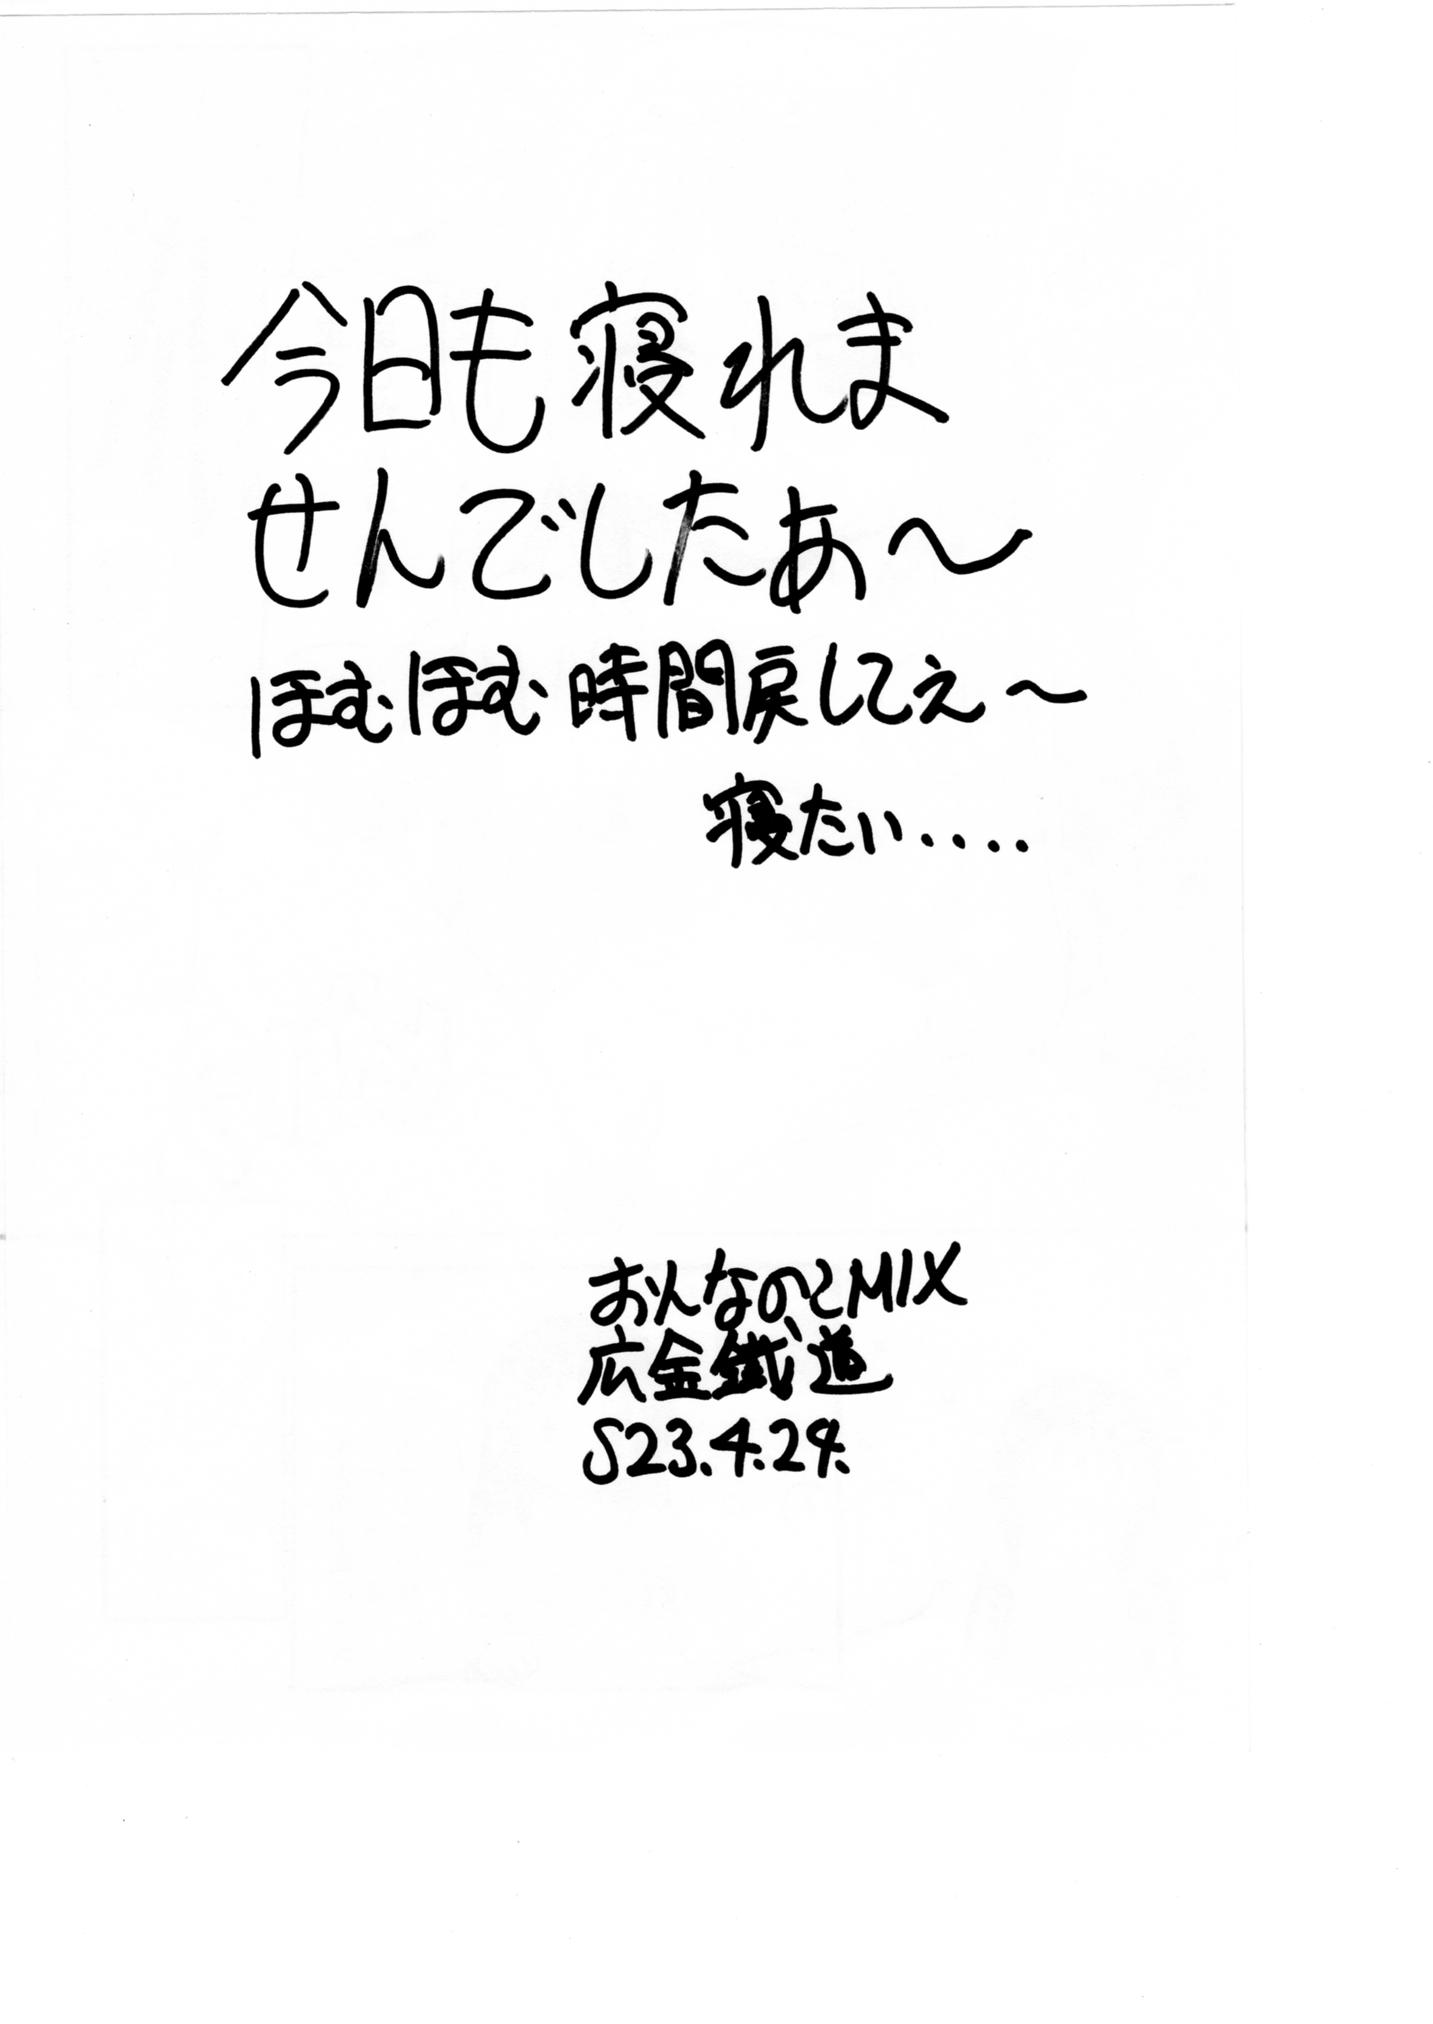 今日も寝れま
せんでしたあ〜
ほむほむ時間戻してえ〜
寝たい....
おんなのこMIX
広金鐵道
S23.4.29.